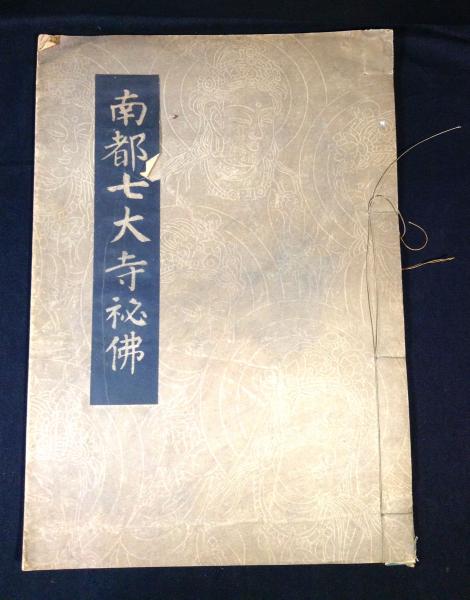 南都七大寺祕佛